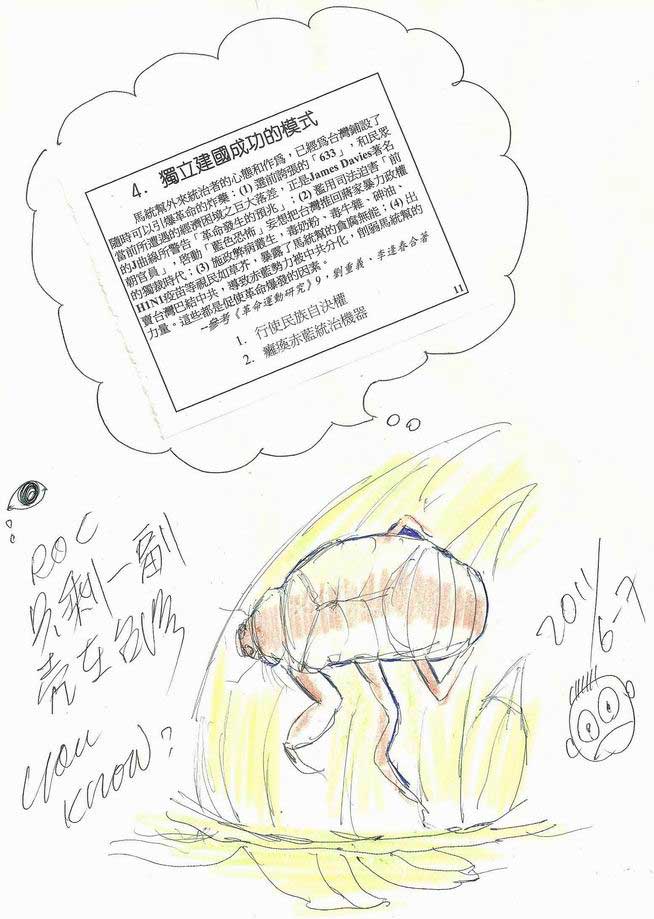 4. 獨立建國成功的模式
馬統幫外來統治者的心態和作為，已經為台灣鋪設了
隨時可以引爆革命的炸藥：(1) 選前誇張的「633」，和民眾
當前所遭遇的經濟困境之巨大落差，正是James Davies著名
的J曲線所警告「革命發生的預兆」；(2) 濫用司法迫害「前
朝官員」，啟動「藍色恐怖」妄想把台灣推回蔣家暴力政權
的獨裁時代；(3) 施政弊病叢生，毒奶粉、毒牛雜、砷油、
H1N1疫苗等視民如草芥，暴露了馬統幫的貪腐無能；(4) 出
賣台灣巴結中共，導致赤藍勢力被中共分化，削弱馬統幫的
力量。這些都是促使革命爆發的因素。
--參考《革命運動研究》9，劉重義、李逢春合著
11
1. 行使民族自決權
2. 癱瘓赤藍統治機器
ROC
只剩一副
壳在台灣
you
know?
2011/6-7